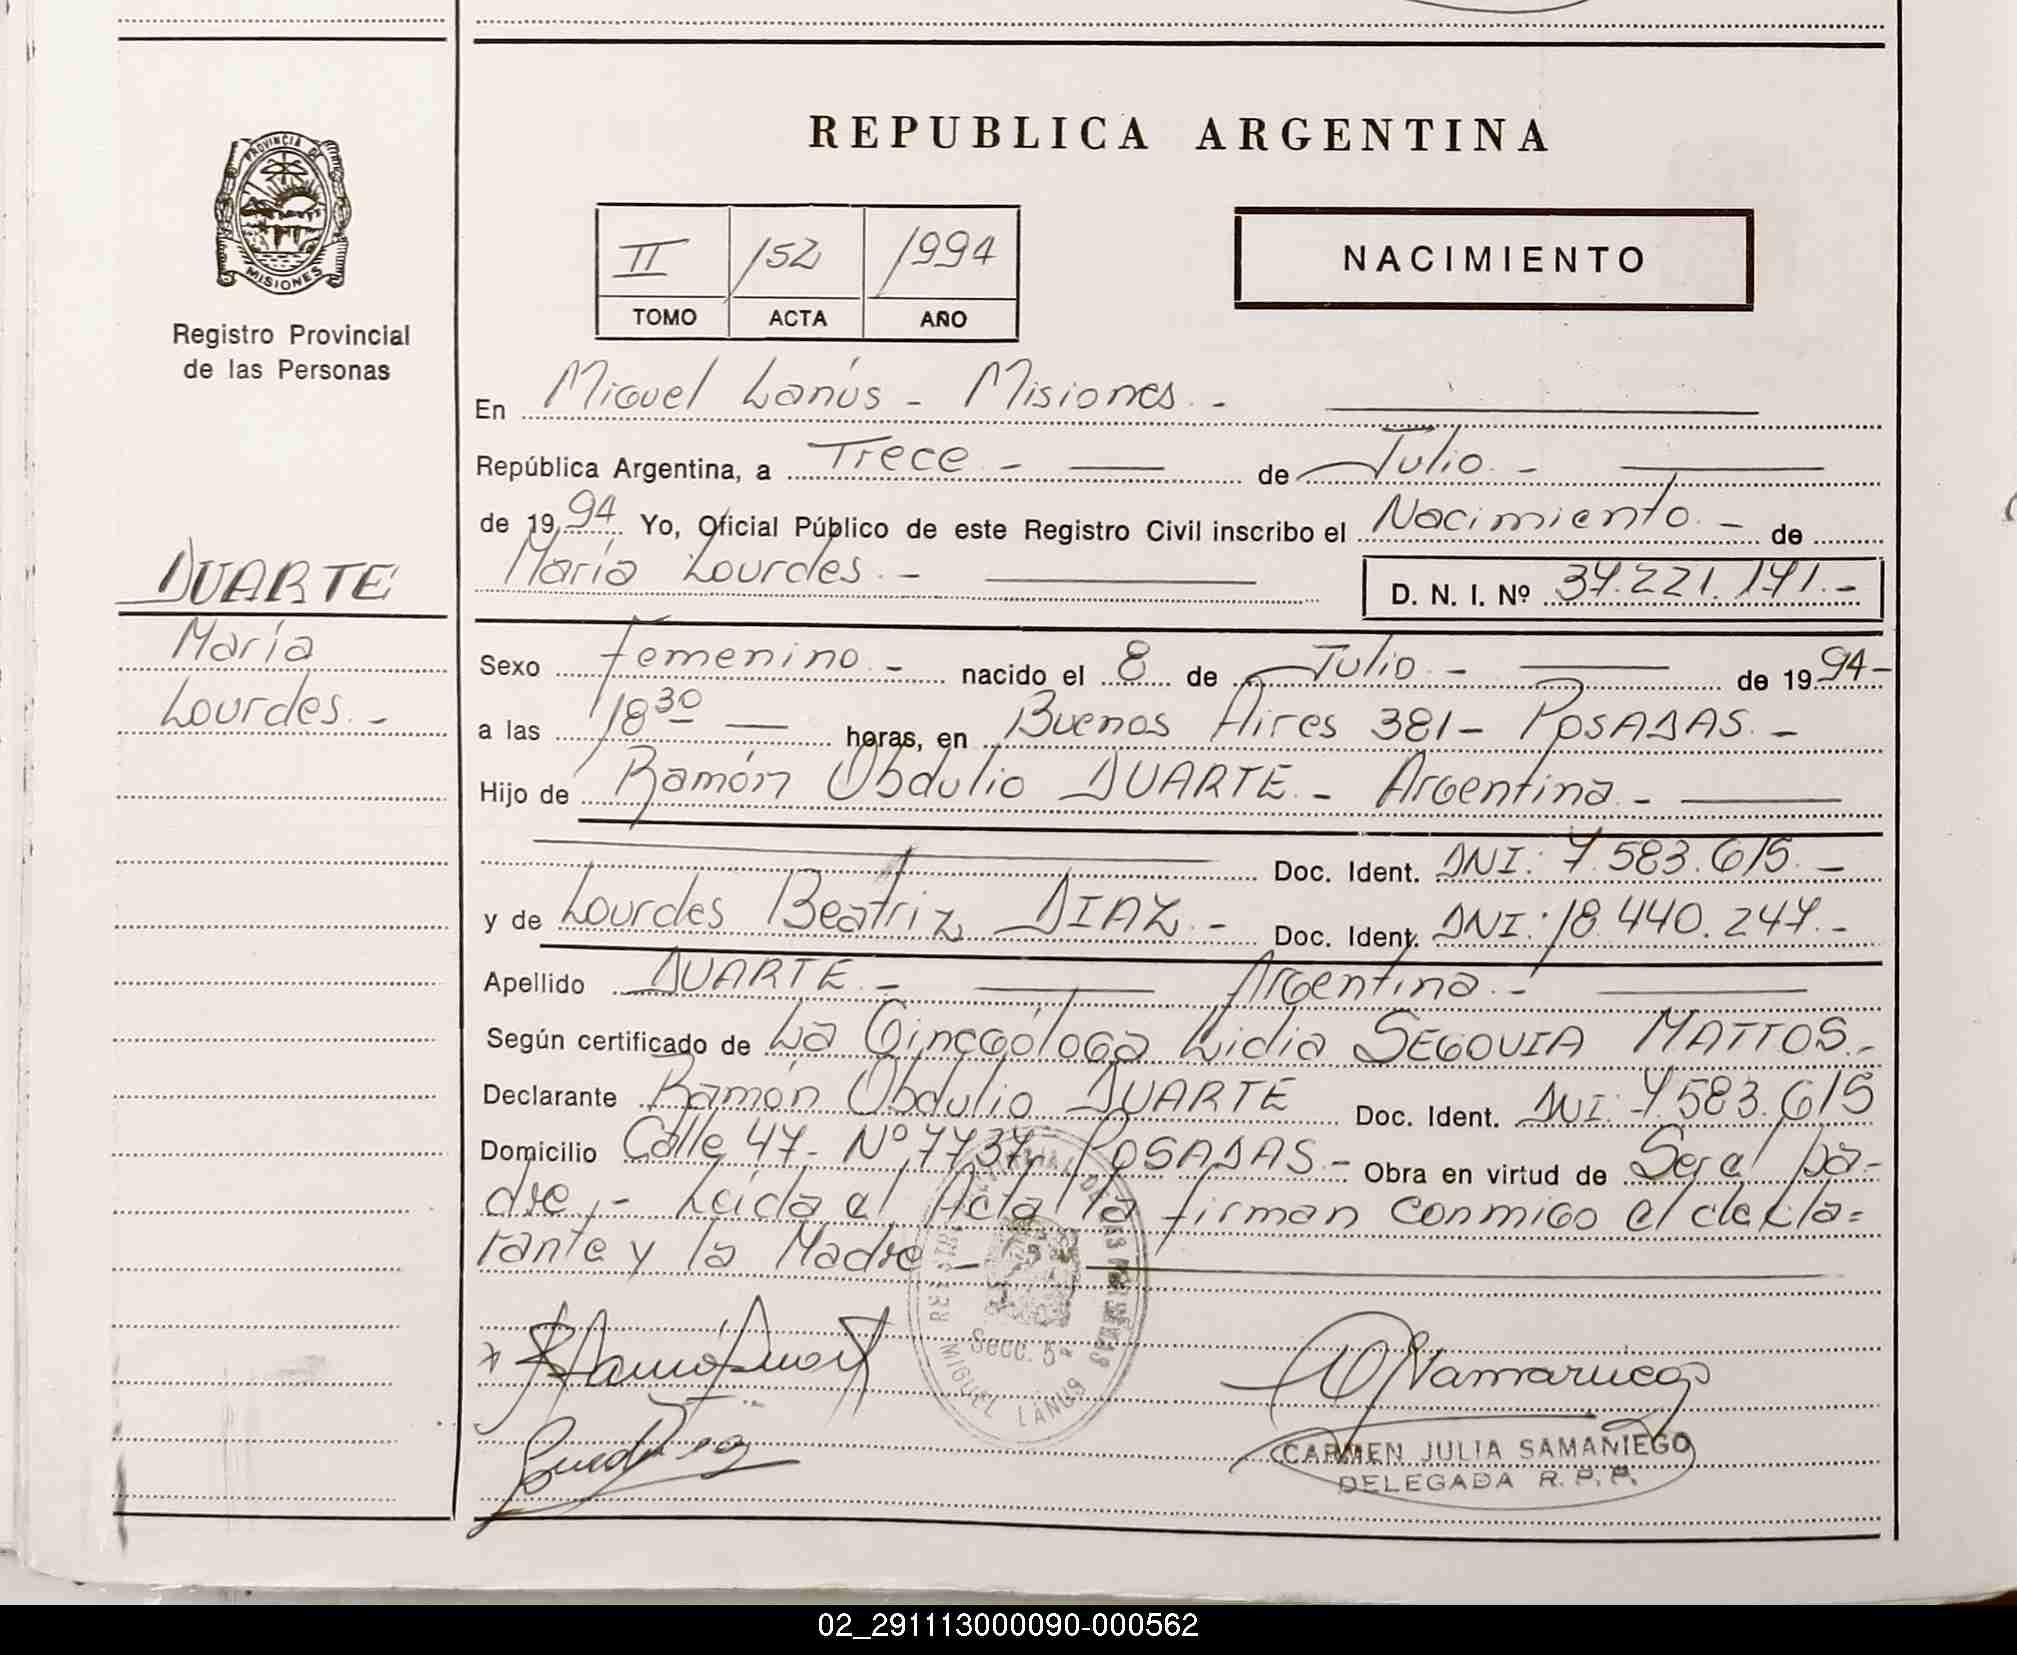 PROVINCIA DE
MISIONES
Registro Provincial
de las Personas
DUARTE
María
Lourdes.-
REPUBLICA ARGENTINA
II 152 1994
TOMO ACTA AÑO
NACIMIENTO
En Miguel Lanús - Misiones.-
República Argentina, a Trece.- de Julio.-
de 1994 Yo, Oficial Público de este Registro Civil inscribo el Nacimiento.- de
María Lourdes.- D. N. I. Nº 37.221.171.-
Sexo femenino.- nacido el 8 de Julio.- de 1994-
a las 18 30 horas, en Buenos Aires 381- POSADAS.-
Hijo de Ramón Obdulio DUARTE.- Argentina.-
Doc. Ident. DNI: 7.583.615.-
y de Lourdes Beatriz DIAZ.- Doc. Ident. DNI: 18.440.247.-
Apellido DUARTE.- Argentina.-
Según certificado de La Ginecóloga Lidia SEGOVIA MATTOS.-
Declarante Ramón Obdulio DUARTE Doc. Ident. DNI: 7.583.615
Domicilio Calle 47- Nº 7737, POSADAS.- Obra en virtud de Ser el pa-
dre,- Leída el Acta la firman conmigo el decla=
rante y la Madre.-
Secc. 5ª
MIGUEL LANUS
CARMEN JULIA SAMANIEGO
DELEGADA R. P. P.
02_291113000090-000562